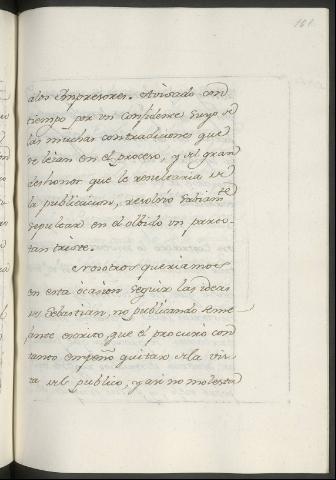 161
a los Empresores. Avisado con
tiempo por un confidente suyo de
las muchas contradiciones que
se leian en el proceso, y del gran
deshonor que le resultaria de
la publicacion, resolbió
sepultar en el olbido un parto
tan triste.
Nosotros queriamos
en esta ócasion seguir las ideas
de Sebastian, no publicando seme
jante escrito, que el procuró con
tanto empeño quitar de la vis-
ta del publico; y asi no molestar